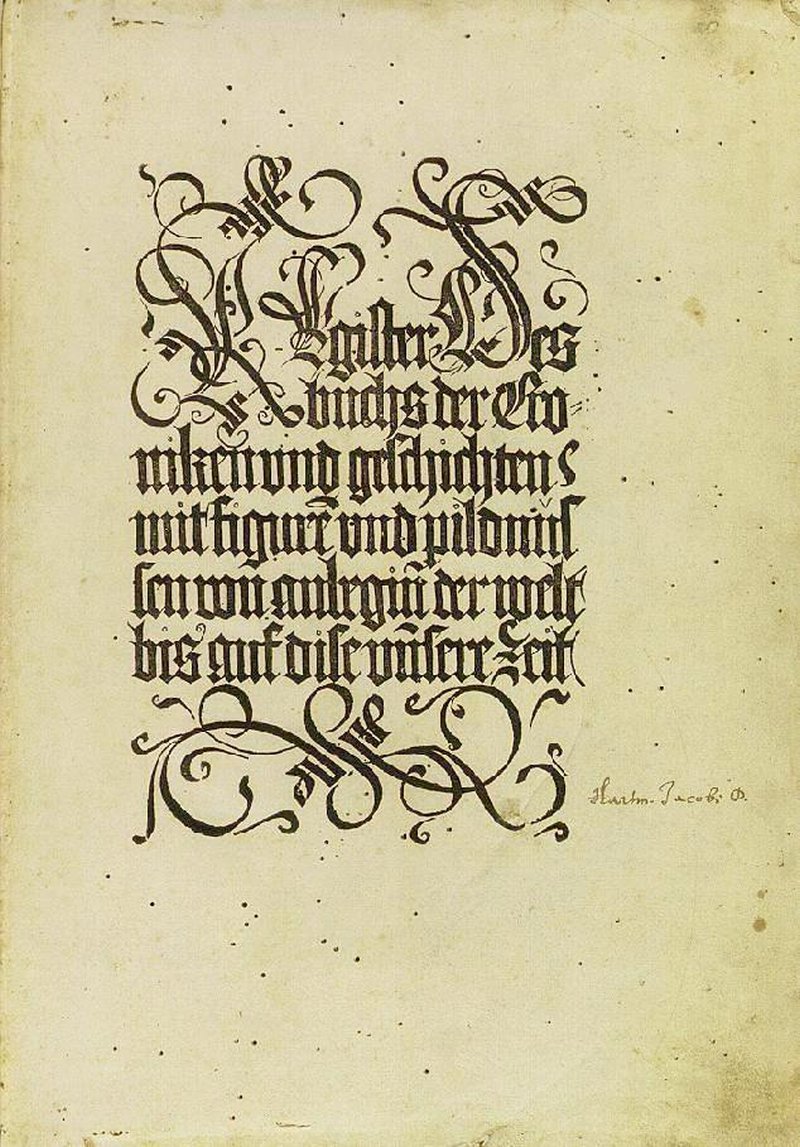 REgister Des
buchs der Cro-
niken und geschichten
mit figurē und pildnüs
sen von anbegiñ der welt
bis auf dise unsere Zeit
Hartm. Jacobi D.